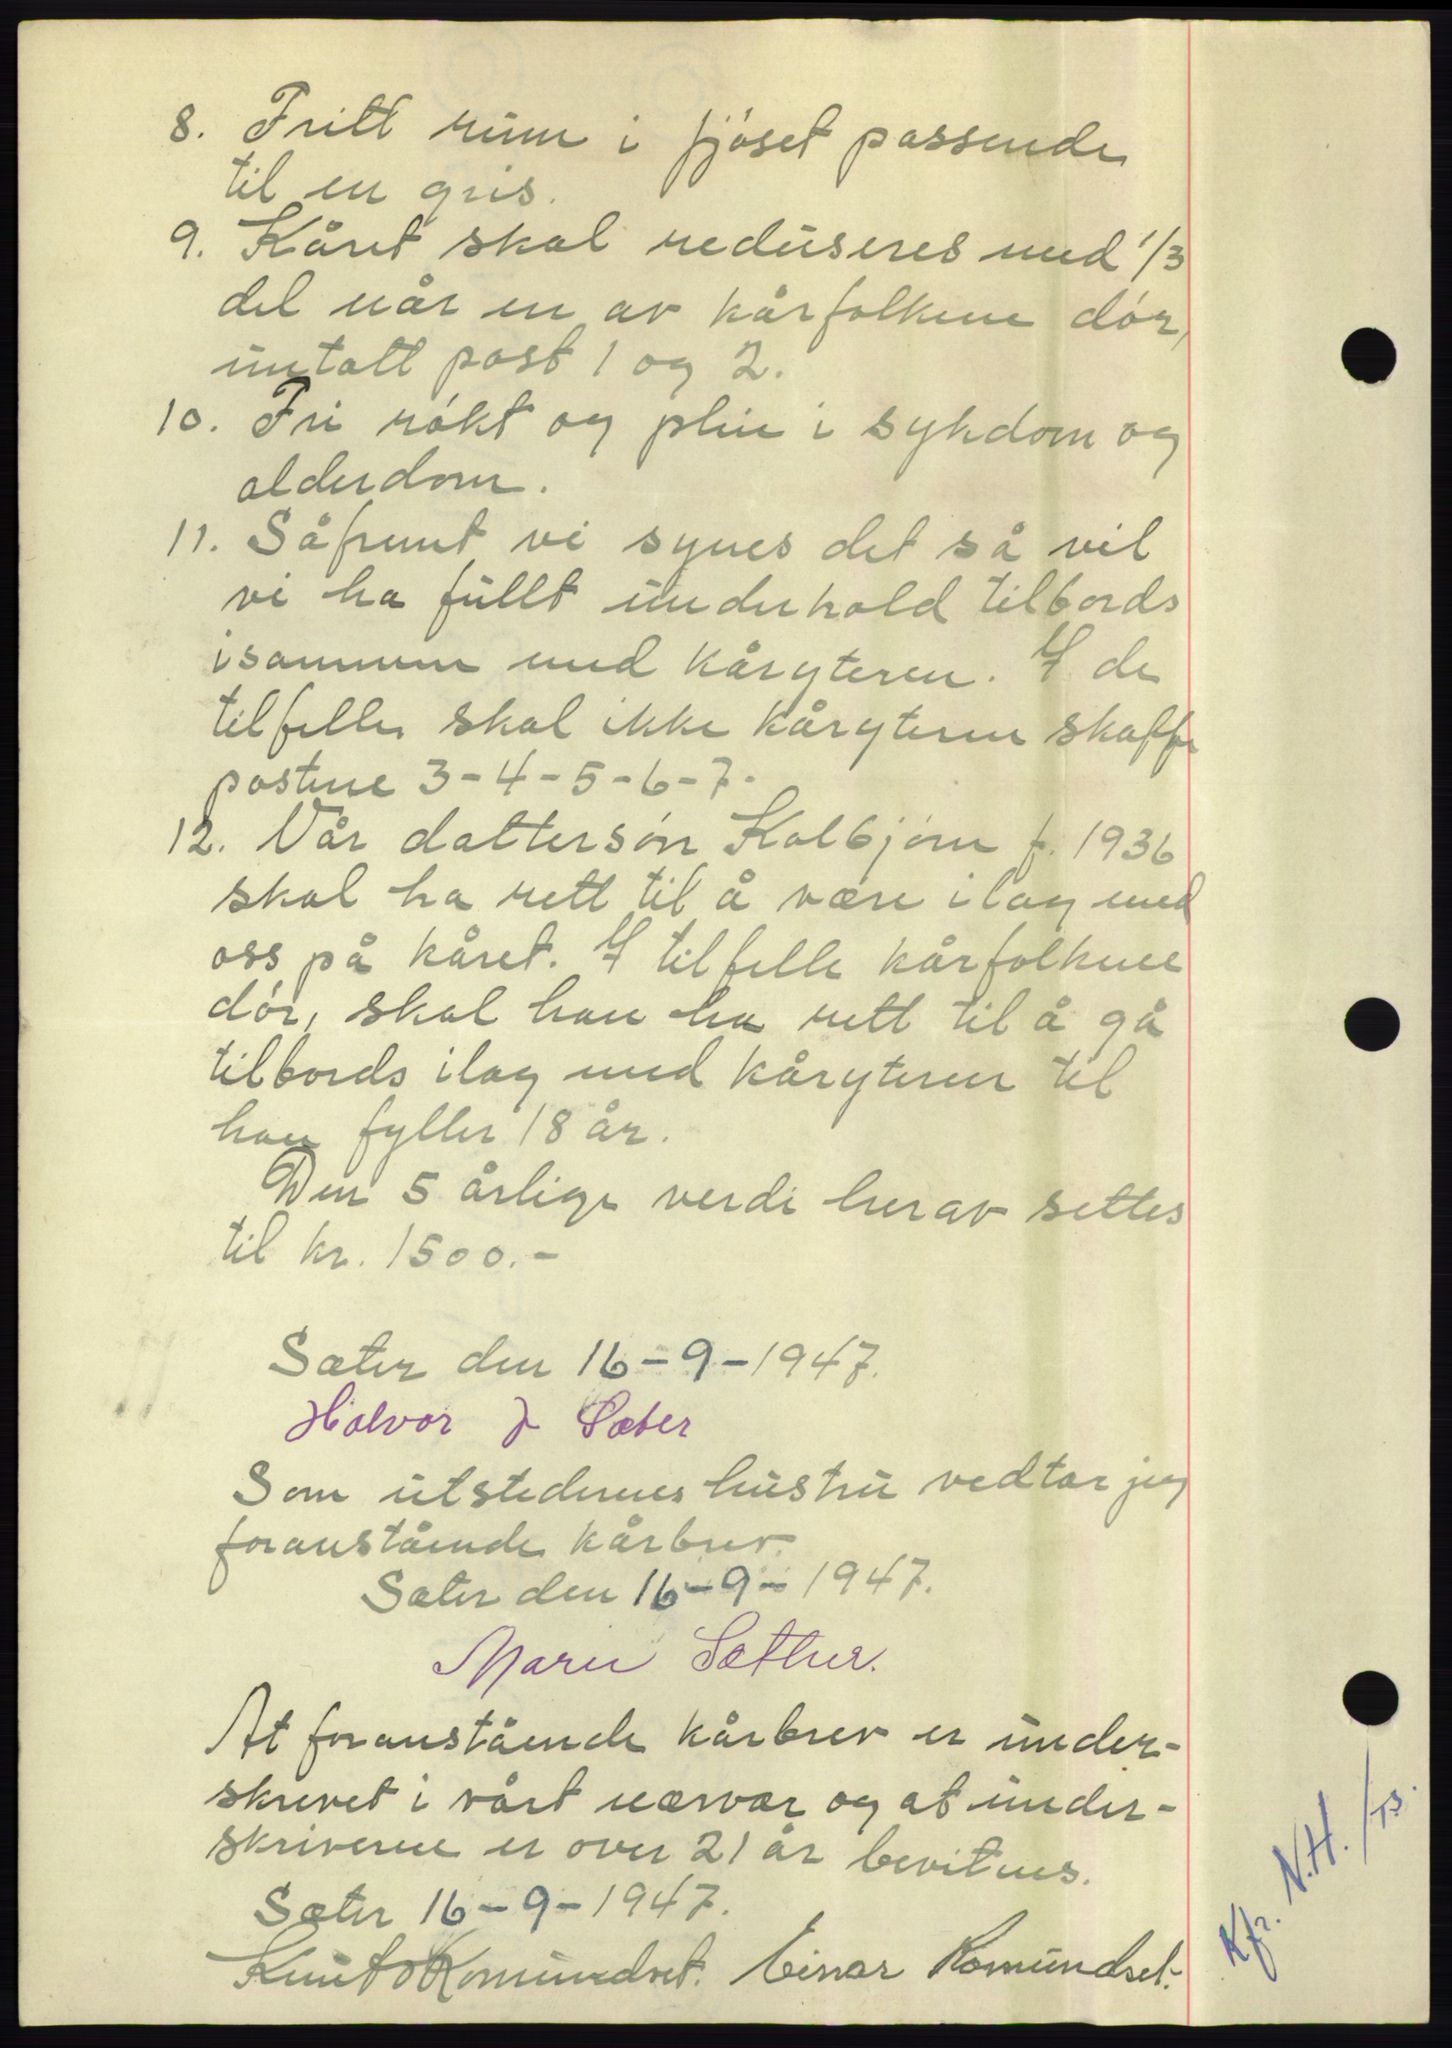 8. Fritt rum i fjøset passende
til en gris.
9. Kåret skal reduseres med 1/3
del når en av kårfolkene dør,
untatt post 1 og 2.
10. Fri røkt og pleie i sykdom og
alderdom.
11. Såfremt vi synes det så vil
vi ha fullt underhold tilbords
isammen med kåryteren. I de
tilfelle skal ikke kåryteren skaffe
postene 3-4-5-6-7.
12. Vår dattersøn Kolbjørn f. 1936
skal ha rett til å være ilag med
oss på kåret. I tilfelle kårfolkene
dør, skal han ha rett til å gå
tilbords ilag med kåryteren til
han fyller 18 år.
Den 5 årlige verdi herav settes
til kr. 1500.-
Sæter den 16-9-1947.
Halvor J Sæter
Som utstedernes hustru vedtar jeg
foranstående kårbrev.
Sæter den 16-9-1947.
Marie Sæther.
At foranstående kårbrev er under-
skrevet i vårt nærvær og at under-
skriverne er over 21 år bevitnes.
Sæter 16-9-1947.
Knut Romundset. Einar Romundset.
Kfr. N.H./TS.